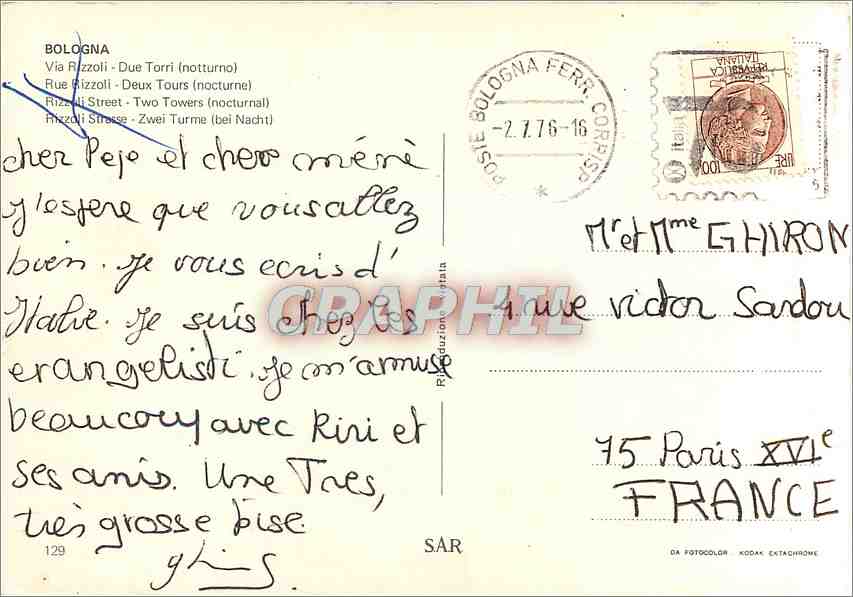 BOLOGNA
Via Rizzoli - Due Torri (notturno)
Rue Rizzoli - Deux Tours (nocturne)
Rizzoli Street - Two Towers (nocturnal)
Rizzoli Strasse - Zwei Turme (bei Nacht)
cher Pepe et chere mémé
J'espere que vous allez
bien. Je vous ecris d'
Italie. Je suis chez les
evangelisti. Je m'amuse
beaucoup avec Riri et
ses amis. Une Tres,
très grosse bise.
129
POSTE BOLOGNA FERR. CORRISP.
-2.7.76-16
*
italia
REPVBBLICA
ITALIANA
LIRE 100
Mr et Mme GHIRON
4 rue victor Sardou
75 Paris XVIe
FRANCE
Riproduzione vietata
CRAPHIL
SAR
DA FOTOCOLOR - KODAK EKTACHROME